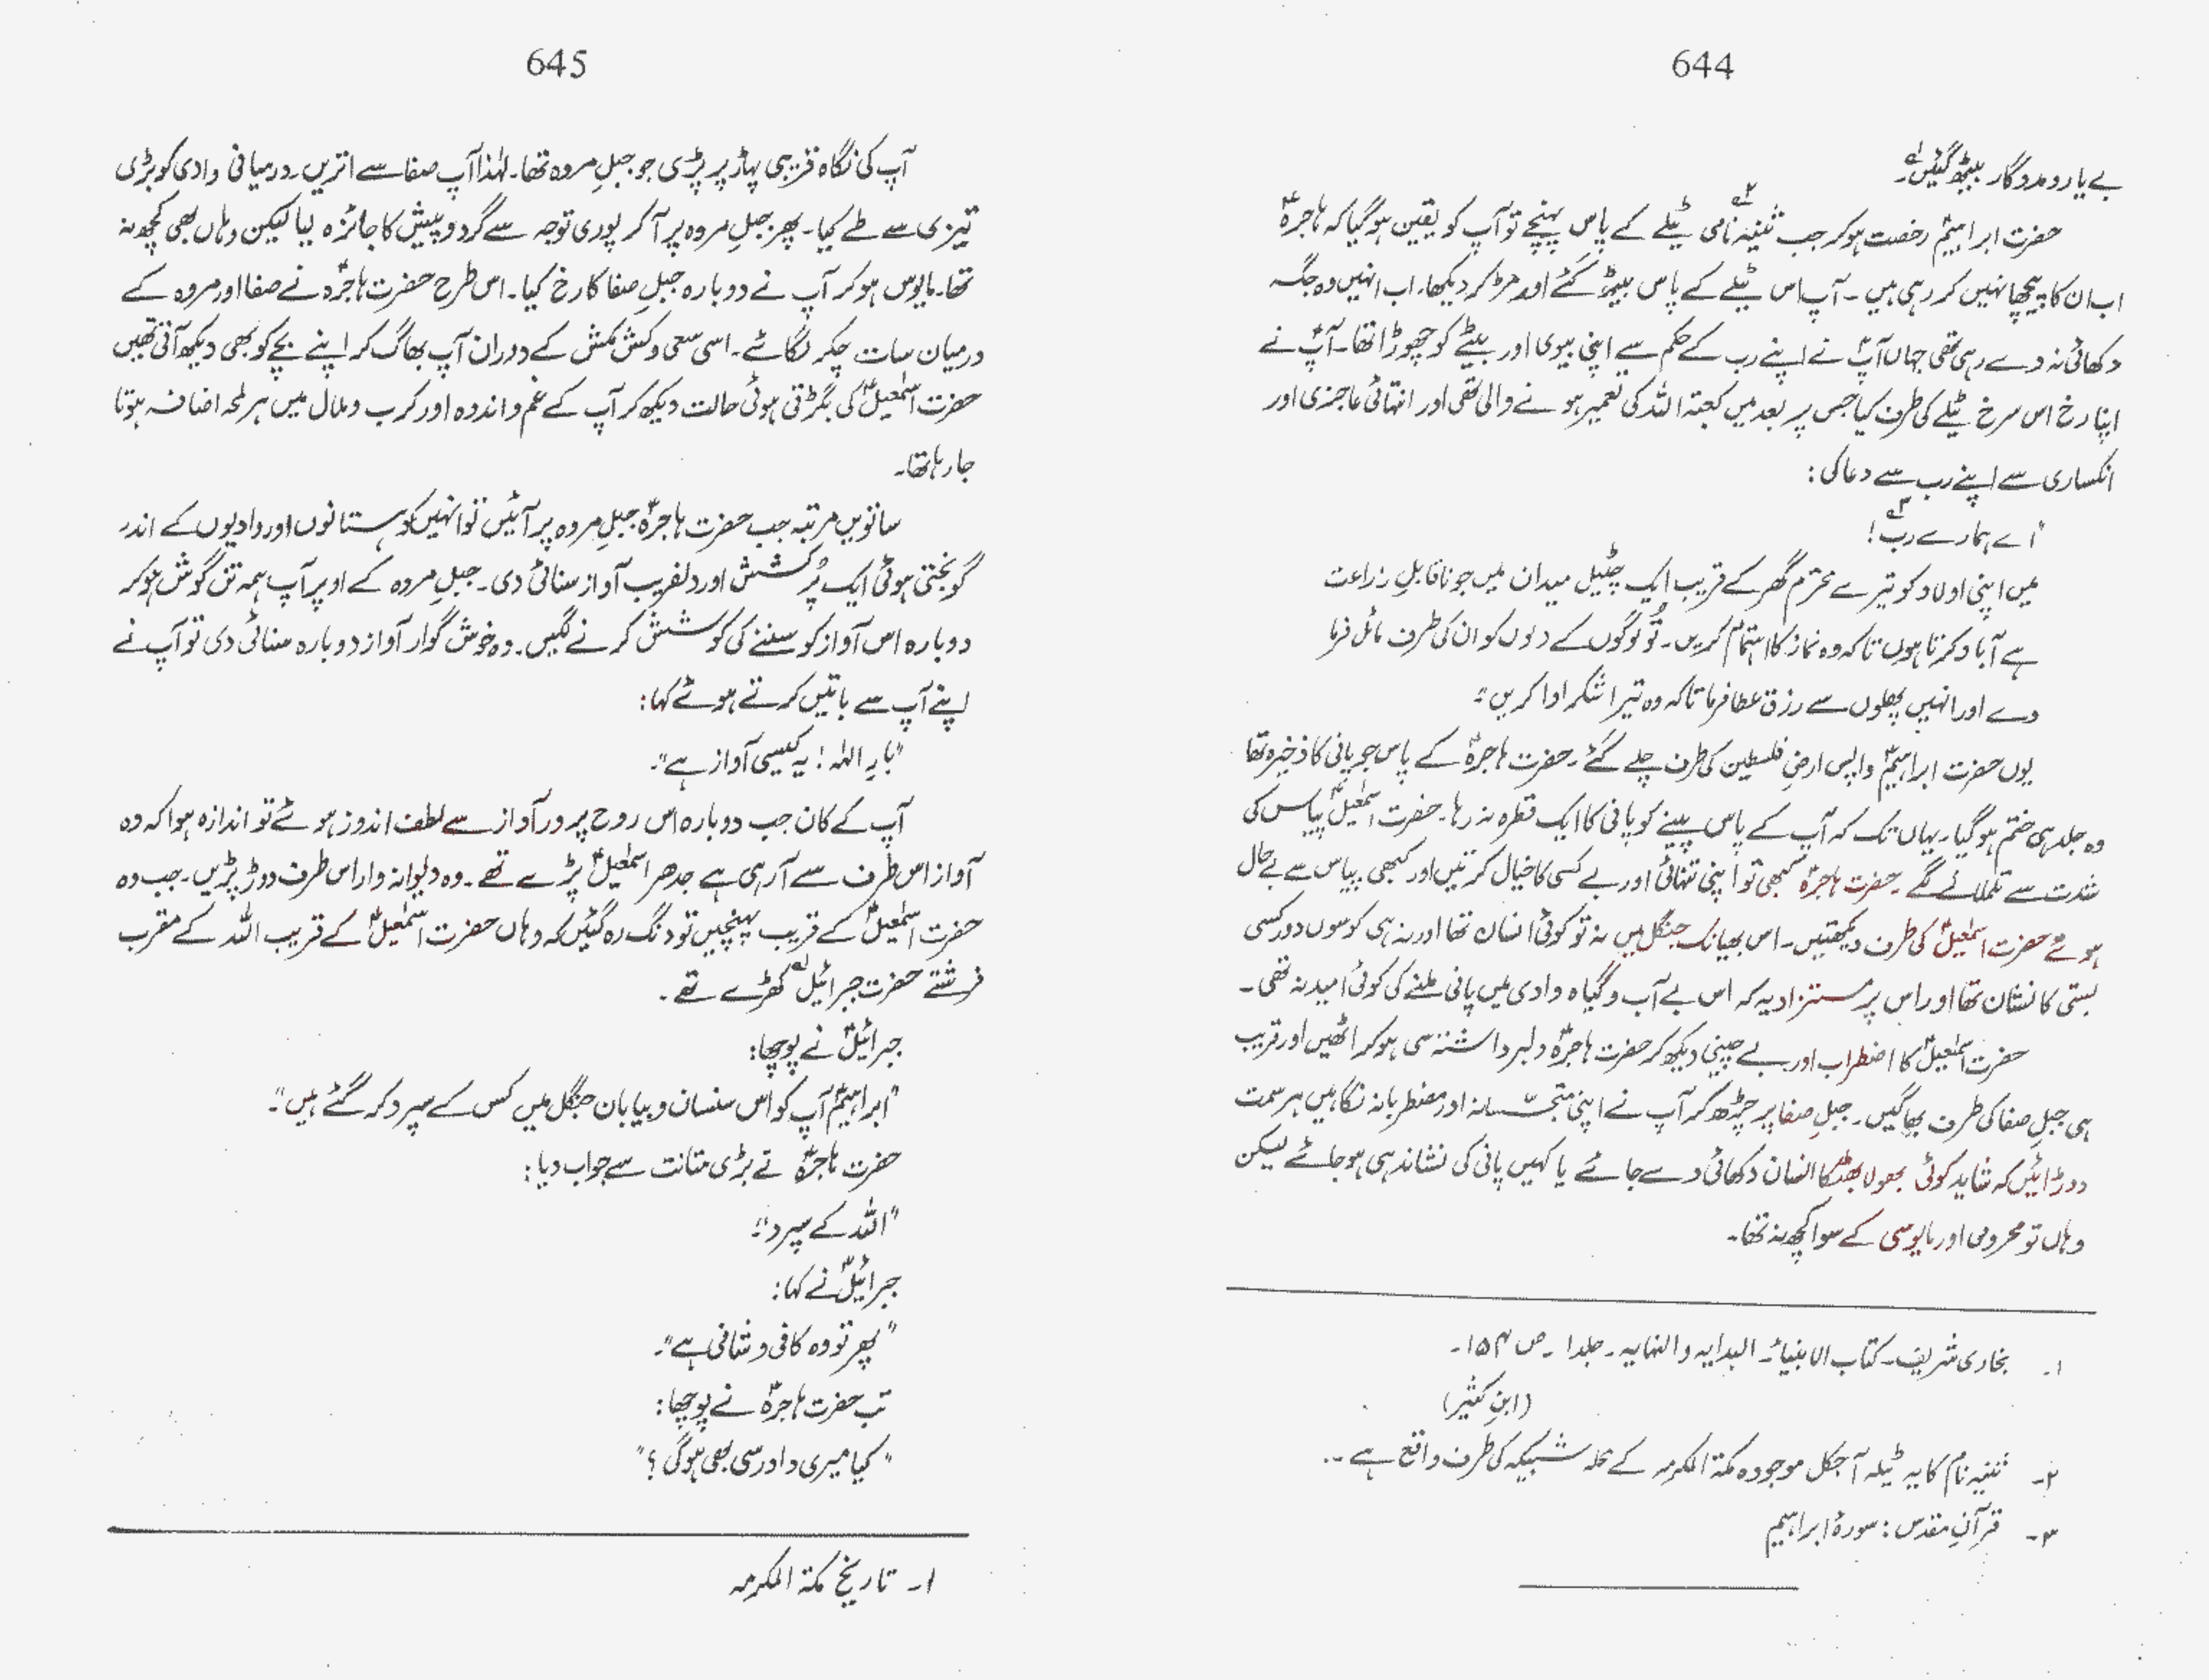 644
بے یار و مددگار بیٹھ گئیں۔۱؎
حضرت ابراہیمؑ رخصت ہو کر جب ثنیہ۲؎ نامی ٹیلے کے پاس پہنچے تو آپ کو یقین ہو گیا کہ ہاجرہؑ
اب ان کا پیچھا نہیں کر رہی ہیں۔ آپ اس ٹیلے کے پاس بیٹھ گئے اور مڑ کر دیکھا۔ اب انہیں وہ جگہ
دکھائی نہ دے رہی تھی جہاں آپؑ نے اپنے رب کے حکم سے اپنی بیوی اور بیٹے کو چھوڑا تھا۔ آپؑ نے
اپنا رخ اس سرخ ٹیلے کی طرف کیا جس پر بعد میں کعبۃ اللہ کی تعمیر ہونے والی تھی اور انتہائی عاجزی اور
انکساری سے اپنے رب سے دعا کی:
"اے ہمارے رب۳؎!
میں اپنی اولاد کو تیرے محترم گھر کے قریب ایک چٹیل میدان میں جو ناقابلِ زراعت
ہے آباد کرتا ہوں تاکہ وہ نماز کا اہتمام کریں۔ تُو لوگوں کے دلوں کو ان کی طرف مائل فرما
دے اور انہیں پھلوں سے رزق عطا فرما تاکہ وہ تیرا شکر ادا کریں"۔
یوں حضرت ابراہیمؑ واپس ارضِ فلسطین کی طرف چلے گئے۔ حضرت ہاجرہؑ کے پاس جو پانی کا ذخیرہ تھا
وہ جلد ہی ختم ہو گیا۔ یہاں تک کہ آپ کے پاس پینے کو پانی کا ایک قطرہ نہ رہا۔ حضرت اسمٰعیلؑ پیاس کی
شدت سے تلملانے لگے۔ حضرت ہاجرہؑ کبھی تو اپنی تنہائی اور بے کسی کا خیال کرتیں اور کبھی پیاس سے بے حال
ہوئے حضرت اسمٰعیلؑ کی طرف دیکھتیں۔ اس بھیانک جنگل میں نہ تو کوئی انسان تھا اور نہ ہی کوسوں دور کسی
بستی کا نشان تھا اور اس پر مستزاد یہ کہ اس بے آب و گیاہ وادی میں پانی ملنے کی کوئی امید نہ تھی۔
حضرت اسمٰعیلؑ کا اضطراب اور بے چینی دیکھ کر حضرت ہاجرہؑ دلبرداشتہ سی ہو کر اٹھیں اور قریب
ہی جبلِ صفا کی طرف بھاگیں۔ جبلِ صفا پر چڑھ کر آپ نے اپنی متجسّسانہ اور مضطربانہ نگاہیں ہر سمت
دوڑائیں کہ شاید کوئی بھولا بھٹکا انسان دکھائی دے جائے یا کہیں پانی کی نشاندہی ہو جائے لیکن
وہاں تو محرومی اور مایوسی کے سوا کچھ نہ تھا۔
۱۔ بخاری شریف۔ کتاب الانبیاءؑ۔ البدایہ والنہایہ۔ جلد ۱۔ ص ۱۵۴۔
(ابنِ کثیر)
۲۔ ثنیہ نام کا یہ ٹیلہ آجکل موجودہ مکۃ المکرمہ کے محلہ شبیکہ کی طرف واقع ہے۔
۳۔ قرآنِ مقدس: سورۂ ابراہیم
645
آپ کی نگاہ قریبی پہاڑ پر پڑی جو جبلِ مروہ تھا۔ لہٰذا آپ صفا سے اتریں۔ درمیانی وادی کو بڑی
تیزی سے طے کیا۔ پھر جبلِ مروہ پر آ کر پوری توجہ سے گردوپیش کا جائزہ لیا لیکن وہاں بھی کچھ نہ
تھا۔ مایوس ہو کر آپ نے دوبارہ جبلِ صفا کا رخ کیا۔ اس طرح حضرت ہاجرہؑ نے صفا اور مروہ کے
درمیان سات چکر لگائے۔ اسی سعی و کش مکش کے دوران آپ بھاگ کر اپنے بچے کو بھی دیکھ آتی تھیں
حضرت اسمٰعیلؑ کی بگڑتی ہوئی حالت دیکھ کر آپ کے غم و اندوہ اور کرب و ملال میں ہر لمحہ اضافہ ہوتا
جا رہا تھا۔
ساتویں مرتبہ جب حضرت ہاجرہؑ جبلِ مروہ پر آئیں تو انہیں کوہستانوں اور وادیوں کے اندر
گونجتی ہوئی ایک پُرکشش اور دلفریب آواز سنائی دی۔ جبلِ مروہ کے اوپر آپ ہمہ تن گوش ہو کر
دوبارہ اس آواز کو سننے کی کوشش کرنے لگیں۔ وہ خوش گوار آواز دوبارہ سنائی دی تو آپ نے
اپنے آپ سے باتیں کرتے ہوئے کہا:
"بارِ الٰہ! یہ کیسی آواز ہے"۔
آپ کے کان جب دوبارہ اس روح پرور آواز سے لطف اندوز ہوئے تو اندازہ ہوا کہ وہ
آواز اس طرف سے آ رہی ہے جدھر اسمٰعیلؑ پڑے تھے۔ وہ دیوانہ وار اس طرف دوڑ پڑیں۔ جب وہ
حضرت اسمٰعیلؑ کے قریب پہنچیں تو دنگ رہ گئیں کہ وہاں حضرت اسمٰعیلؑ کے قریب اللہ کے مقرب
فرشتے حضرت جبرائیل۱؎ کھڑے تھے۔
جبرائیلؑ نے پوچھا:
"ابراہیمؑ آپ کو اس سنسان و بیابان جنگل میں کس کے سپرد کر گئے ہیں"۔
حضرت ہاجرہؑ نے بڑی متانت سے جواب دیا:
"اللہ کے سپرد"۔
جبرائیلؑ نے کہا:
"پھر تو وہ کافی و شافی ہے"۔
تب حضرت ہاجرہؑ نے پوچھا:
"کیا میری دادرسی بھی ہو گی؟"
۱۔ تاریخ مکۃ المکرمہ